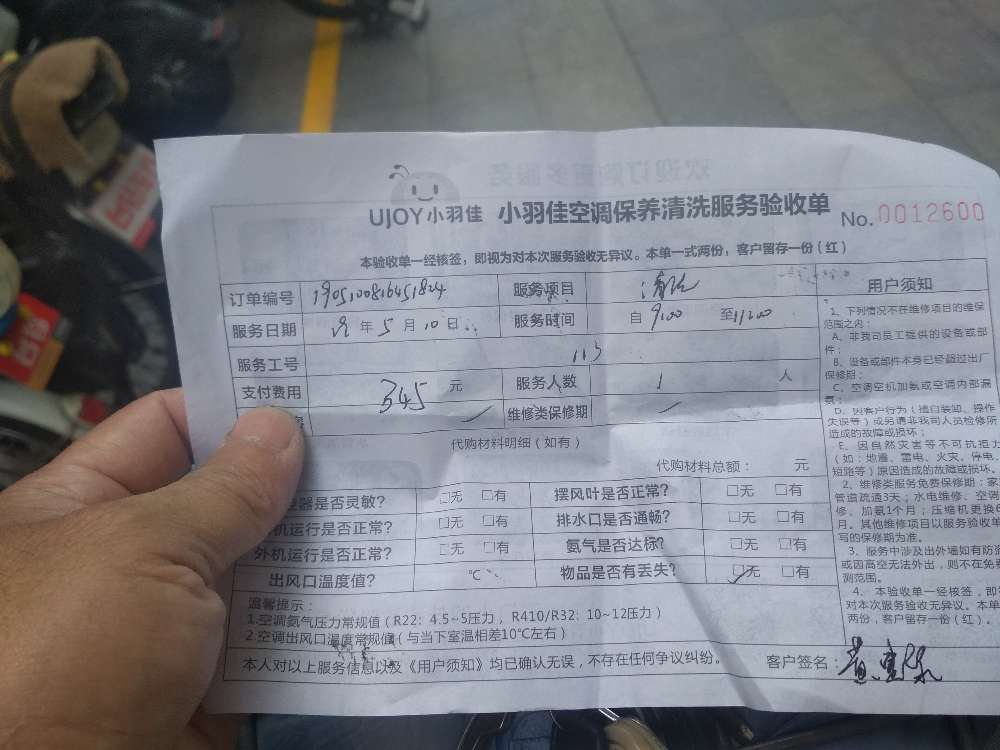 UJOY小羽佳 小羽佳空调保养清洗服务验收单 No.0012600
本验收单一经核签，即视为对本次服务验收无异议。本单一式两份，客户留存一份（红）
订单编号 1905100816451824 服务项目
服务日期 年5月10日 服务时间 自9:00 至11:00
服务工号 113
支付费用 345 元 服务人数 1 人
维修类保修期
代购材料明细（如有）
代购材料总额： 元
器是否灵敏？ □无 □有 摆风叶是否正常？ □无 □有
机运行是否正常？ □无 □有 排水口是否通畅？ □无 □有
外机运行是否正常？ □无 □有 氨气是否达标？ □无 □有
出风口温度值？ ℃ 物品是否有丢失？ □无 □有
温馨提示：
1.空调氨气压力常规值（R22：4.5~5压力，R410/R32：10~12压力）
2.空调出风口温度常规值（与当下室温相差10℃左右）
本人对以上服务信息以及《用户须知》均已确认无误，不存在任何争议纠纷。 客户签名：
用户须知
1、下列情况不在维修项目的维保
范围之内：
A、非我司员工提供的设备或部
件；
B、设备或部件本身已经超过出厂
保修期；
C、空调空机加氨或空调内部漏
氨；
D、因客户行为（擅自装卸、操作
失误等）或另请非我司人员检修所
造成的故障或损坏；
E、因自然灾害等不可抗拒力
（如：地震、雷电、火灾、停电、
短路等）原因造成的故障或损坏。
2、维修类服务免费保修期：家
管道疏通3天；水电维修、空调
修、加氨1个月；压缩机更换6
月。其他维修项目以服务验收单
写的保修期为准。
3、服务中涉及出外墙如有防
或因高空无法外出，则不在免
测范围。
4、本验收单一经核签，即
对本次服务验收无异议。本单
两份，客户留存一份（红）。